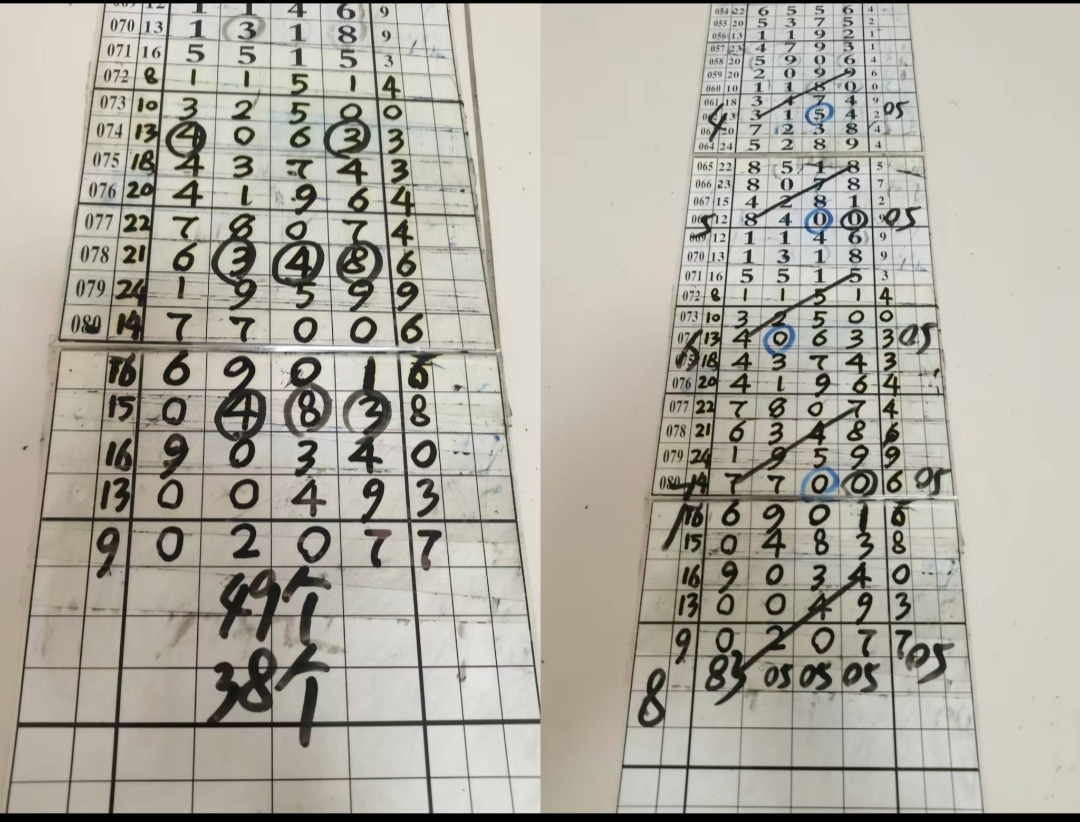 069 12 1 1 4 6 9
070 13 1 3 1 8 9
071 16 5 5 1 5 3
072 8 1 1 5 1 4
073 10 3 2 5 0 0
074 13 4 0 6 3 3
075 18 4 3 7 4 3
076 20 4 1 9 6 4
077 22 7 8 0 7 4
078 21 6 3 4 8 6
079 24 1 9 5 9 9
080 14 7 7 0 0 6
16 6 9 0 1 6
15 0 4 8 3 8
16 9 0 3 4 0
13 0 0 4 9 3
9 0 2 0 7 7
49上
38上
054 22 6 5 5 6 4
055 20 5 3 7 5 2
056 13 1 1 9 2 1
057 23 4 7 9 3 1
058 20 5 9 0 6 4
059 20 2 0 9 9 6
060 10 1 1 8 0 0
061 18 3 4 7 4 9
4 13 3 1 5 4 2 05
20 7 2 3 8 4
064 24 5 2 8 9 4
065 22 8 5 1 8 5
066 23 8 0 7 8 7
067 15 4 2 8 1 2
5 12 8 4 0 0 9 05
069 12 1 1 4 6 9
070 13 1 3 1 8 9
071 16 5 5 1 5 3
072 8 1 1 5 1 4
073 10 3 2 5 0 0
6 13 4 0 6 3 3 05
18 4 3 7 4 3
076 20 4 1 9 6 4
077 22 7 8 0 7 4
078 21 6 3 4 8 6
079 24 1 9 5 9 9
080 14 7 7 0 0 6 05
7 16 6 9 0 1 6
15 0 4 8 3 8
16 9 0 3 4 0
13 0 0 4 9 3
9 0 2 0 7 7 05
8 83 05 05 05